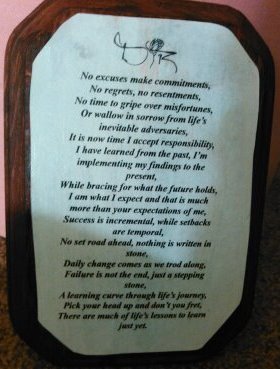 No excuses make commitments,
No regrets, no resentments,
No time to gripe over misfortunes,
Or wallow in sorrow from life's
inevitable adversaries,
It is now time I accept responsibility,
I have learned from the past, I'm
implementing my findings to the
present,
While bracing for what the future holds,
I am what I expect and that is much
more than your expectations of me,
Success is incremental, while setbacks
are temporal,
No set road ahead, nothing is written in
stone,
Daily change comes as we trod along,
Failure is not the end, just a stepping
stone,
A learning curve through life's journey,
Pick your head up and don't you fret,
There are much of life's lessons to learn
just yet.